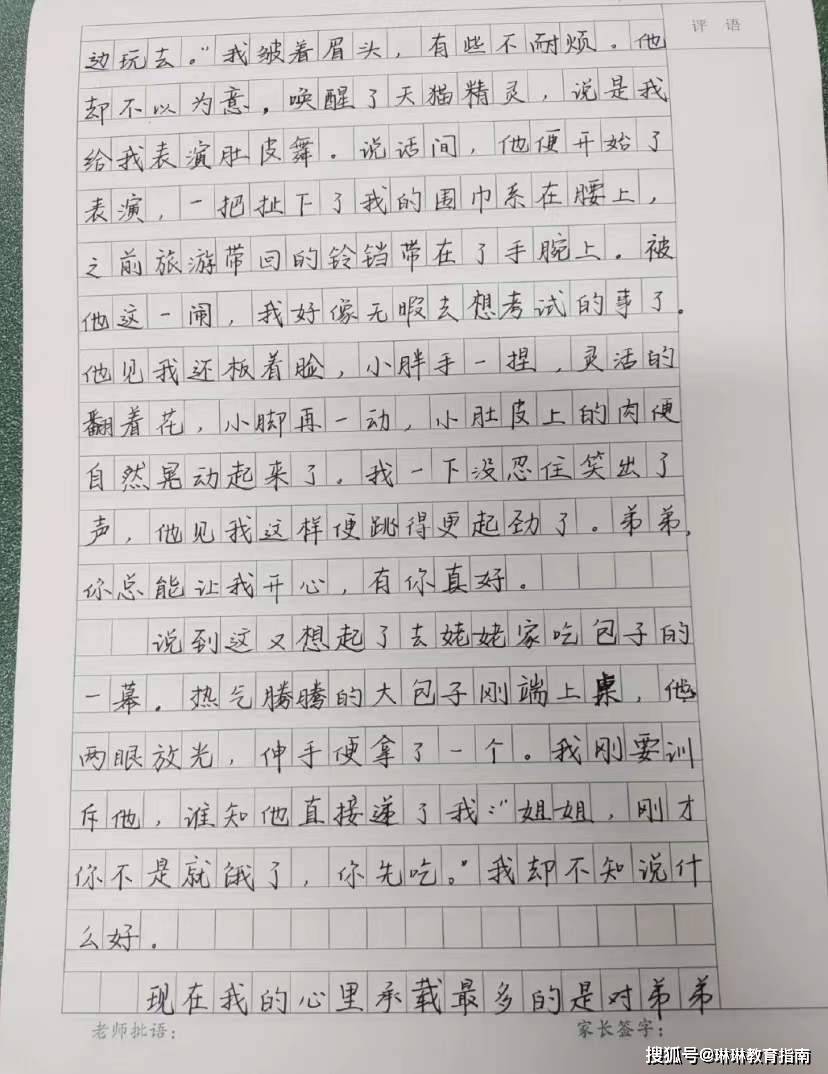 评 语
边玩去。"我皱着眉头，有些不耐烦。他
却不以为意，唤醒了天猫精灵，说是我
给我表演肚皮舞。说话间，他便开始了
表演，一把扯下了我的围巾系在腰上，
之前旅游带回的铃铛带在了手腕上。被
他这一闹，我好像无暇去想考试的事了。
他见我还板着脸，小胖手一捏，灵活的
翻着花，小脚再一动，小肚皮上的肉便
自然晃动起来了。我一下没忍住笑出了
声，他见我这样便跳得更起劲了。弟弟，
你总能让我开心，有你真好。
说到这又想起了去姥姥家吃包子的
一幕。热气腾腾的大包子刚端上桌，他
两眼放光，伸手便拿了一个。我刚要训
斥他，谁知他直接递了我："姐姐，刚才
你不是就饿了，你先吃。"我却不知说什
么好。
现在我的心里承载最多的是对弟弟
老师批语：
家长签字：
搜狐号@琳琳教育指南